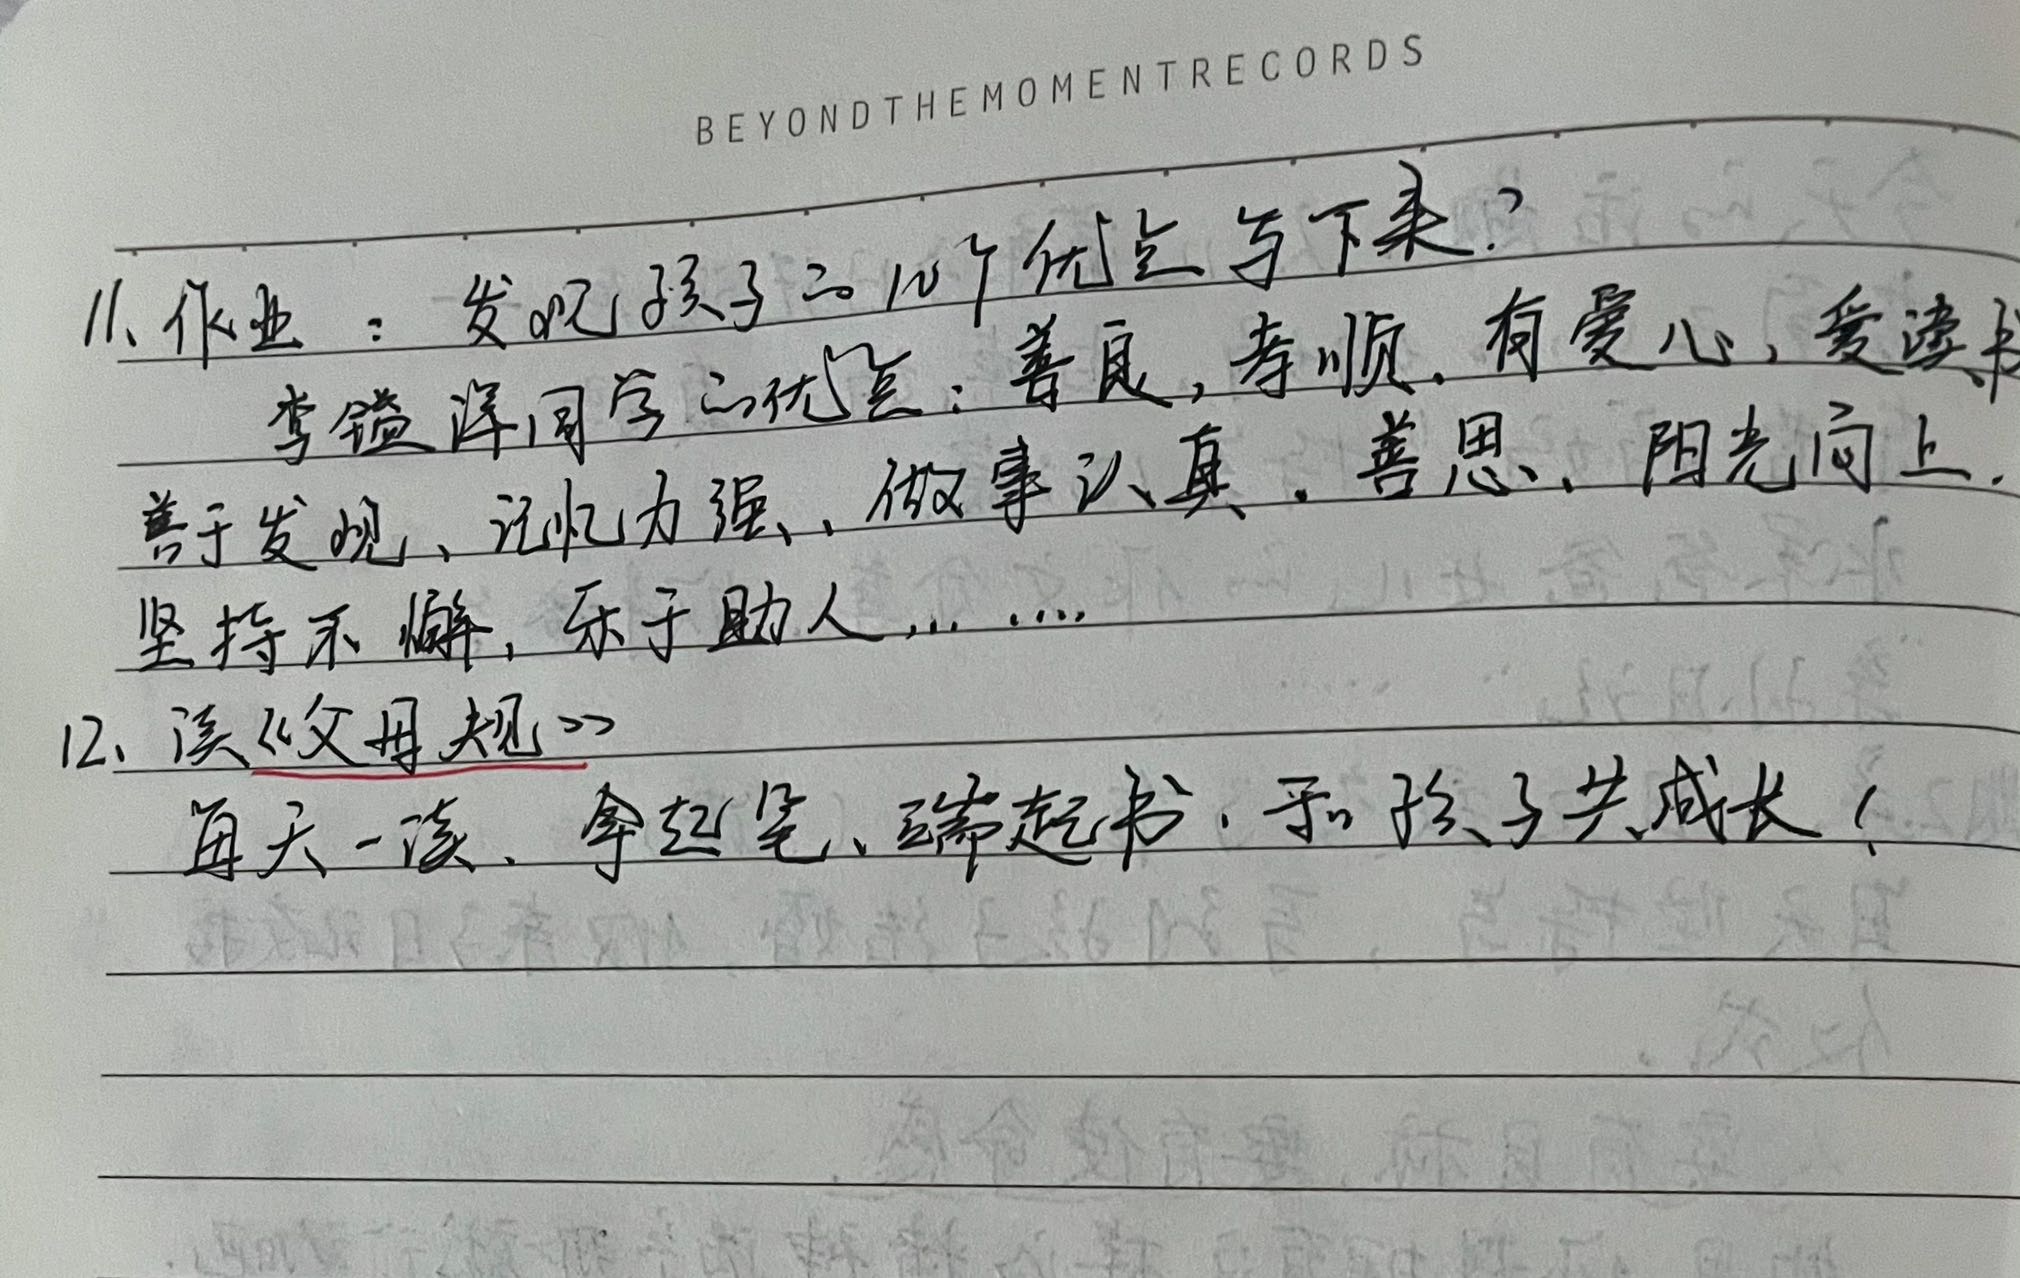 BEYONDTHEMOMENTRECORDS
11、作业：发现孩子的10个优点写下来？
李镒洋同学的优点：善良，孝顺、有爱心、爱读书
善于发现、记忆力强、、做事认真、善思、阳光向上、
坚持不懈，乐于助人……  ……
12、读《父母规》
每天一读、拿起笔、端起书，和孩子共成长！